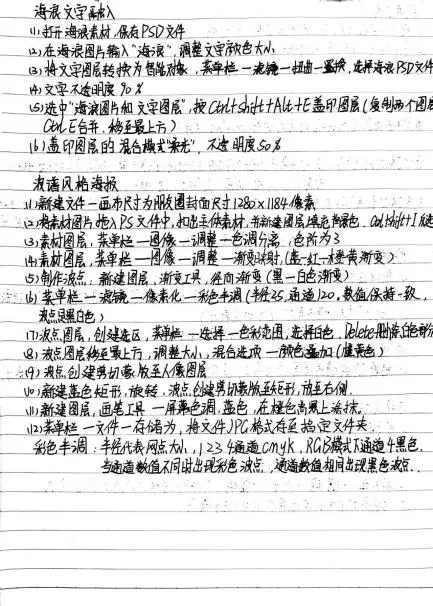 海浪文字融入
(1)打开海浪素材,保存PSD文件
(2)在海浪图片输入“海浪”,调整文字颜色大小
(3)将文字图层转换为智能对象,菜单栏—滤镜—扭曲—置换,选择海浪PSD文件
(4)文字不透明度90%
(5)选中“海浪图片和文字图层”,按Ctrl+shift+Alt+E盖印图层(复制两个图层
Ctrl E合并,移至最上方)
(6)盖印图层的混合模式“柔光”,不透明度50%
风格海报
(1)新建文件—画布尺寸为朋友圈封面尺寸1280×1184像素
(2)将素材图片拖入PS文件中,抠出主体素材,并新建图层填充背景色,Ctrl+shift+I反选
(3)素材图层,菜单栏—图像—调整—色调分离,色阶为3
(4)素材图层,菜单栏—图像—调整—渐变映射(蓝—红—橙黄渐变)
(5)制作波点:新建图层,渐变工具,径向渐变(黑—白色渐变)
(6)菜单栏—滤镜—像素化—彩色半调(半径25,通道120,数值保持一致,
波点是黑白色)
(7)波点图层,创建选区,菜单栏—选择—色彩范围,选择白色,Delete删除白色部分
(8)波点图层移至最上方,调整大小,混合选项—颜色叠加
(9)波点创建剪切蒙版至人像图层
(10)新建蓝色矩形,旋转,波点创建剪切蒙版至矩形,放至右侧
(11)新建图层,画笔工具—屏幕色调,蓝色,在橙色背景上涂抹。
(12)菜单栏—文件—存储为,将文件JPG格式存至指定文件夹
彩色半调:半径代表网点大小,1234通道CMYK,RGB模式下通道4黑色.
当通道数值不同时出现彩色波点,通道数值相同出现黑色波点.